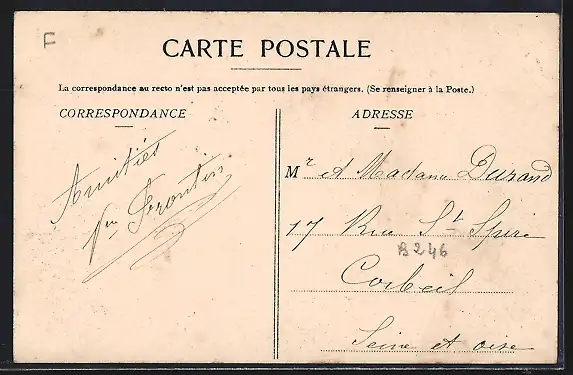 F
CARTE POSTALE
La correspondance au recto n'est pas acceptée par tous les pays étrangers. (Se renseigner à la Poste.)
CORRESPONDANCE
Amitiés
Vve Frontin
ADRESSE
Mr et Madame Durand
17 Rue St Spire
B246
Corbeil
Seine et oise